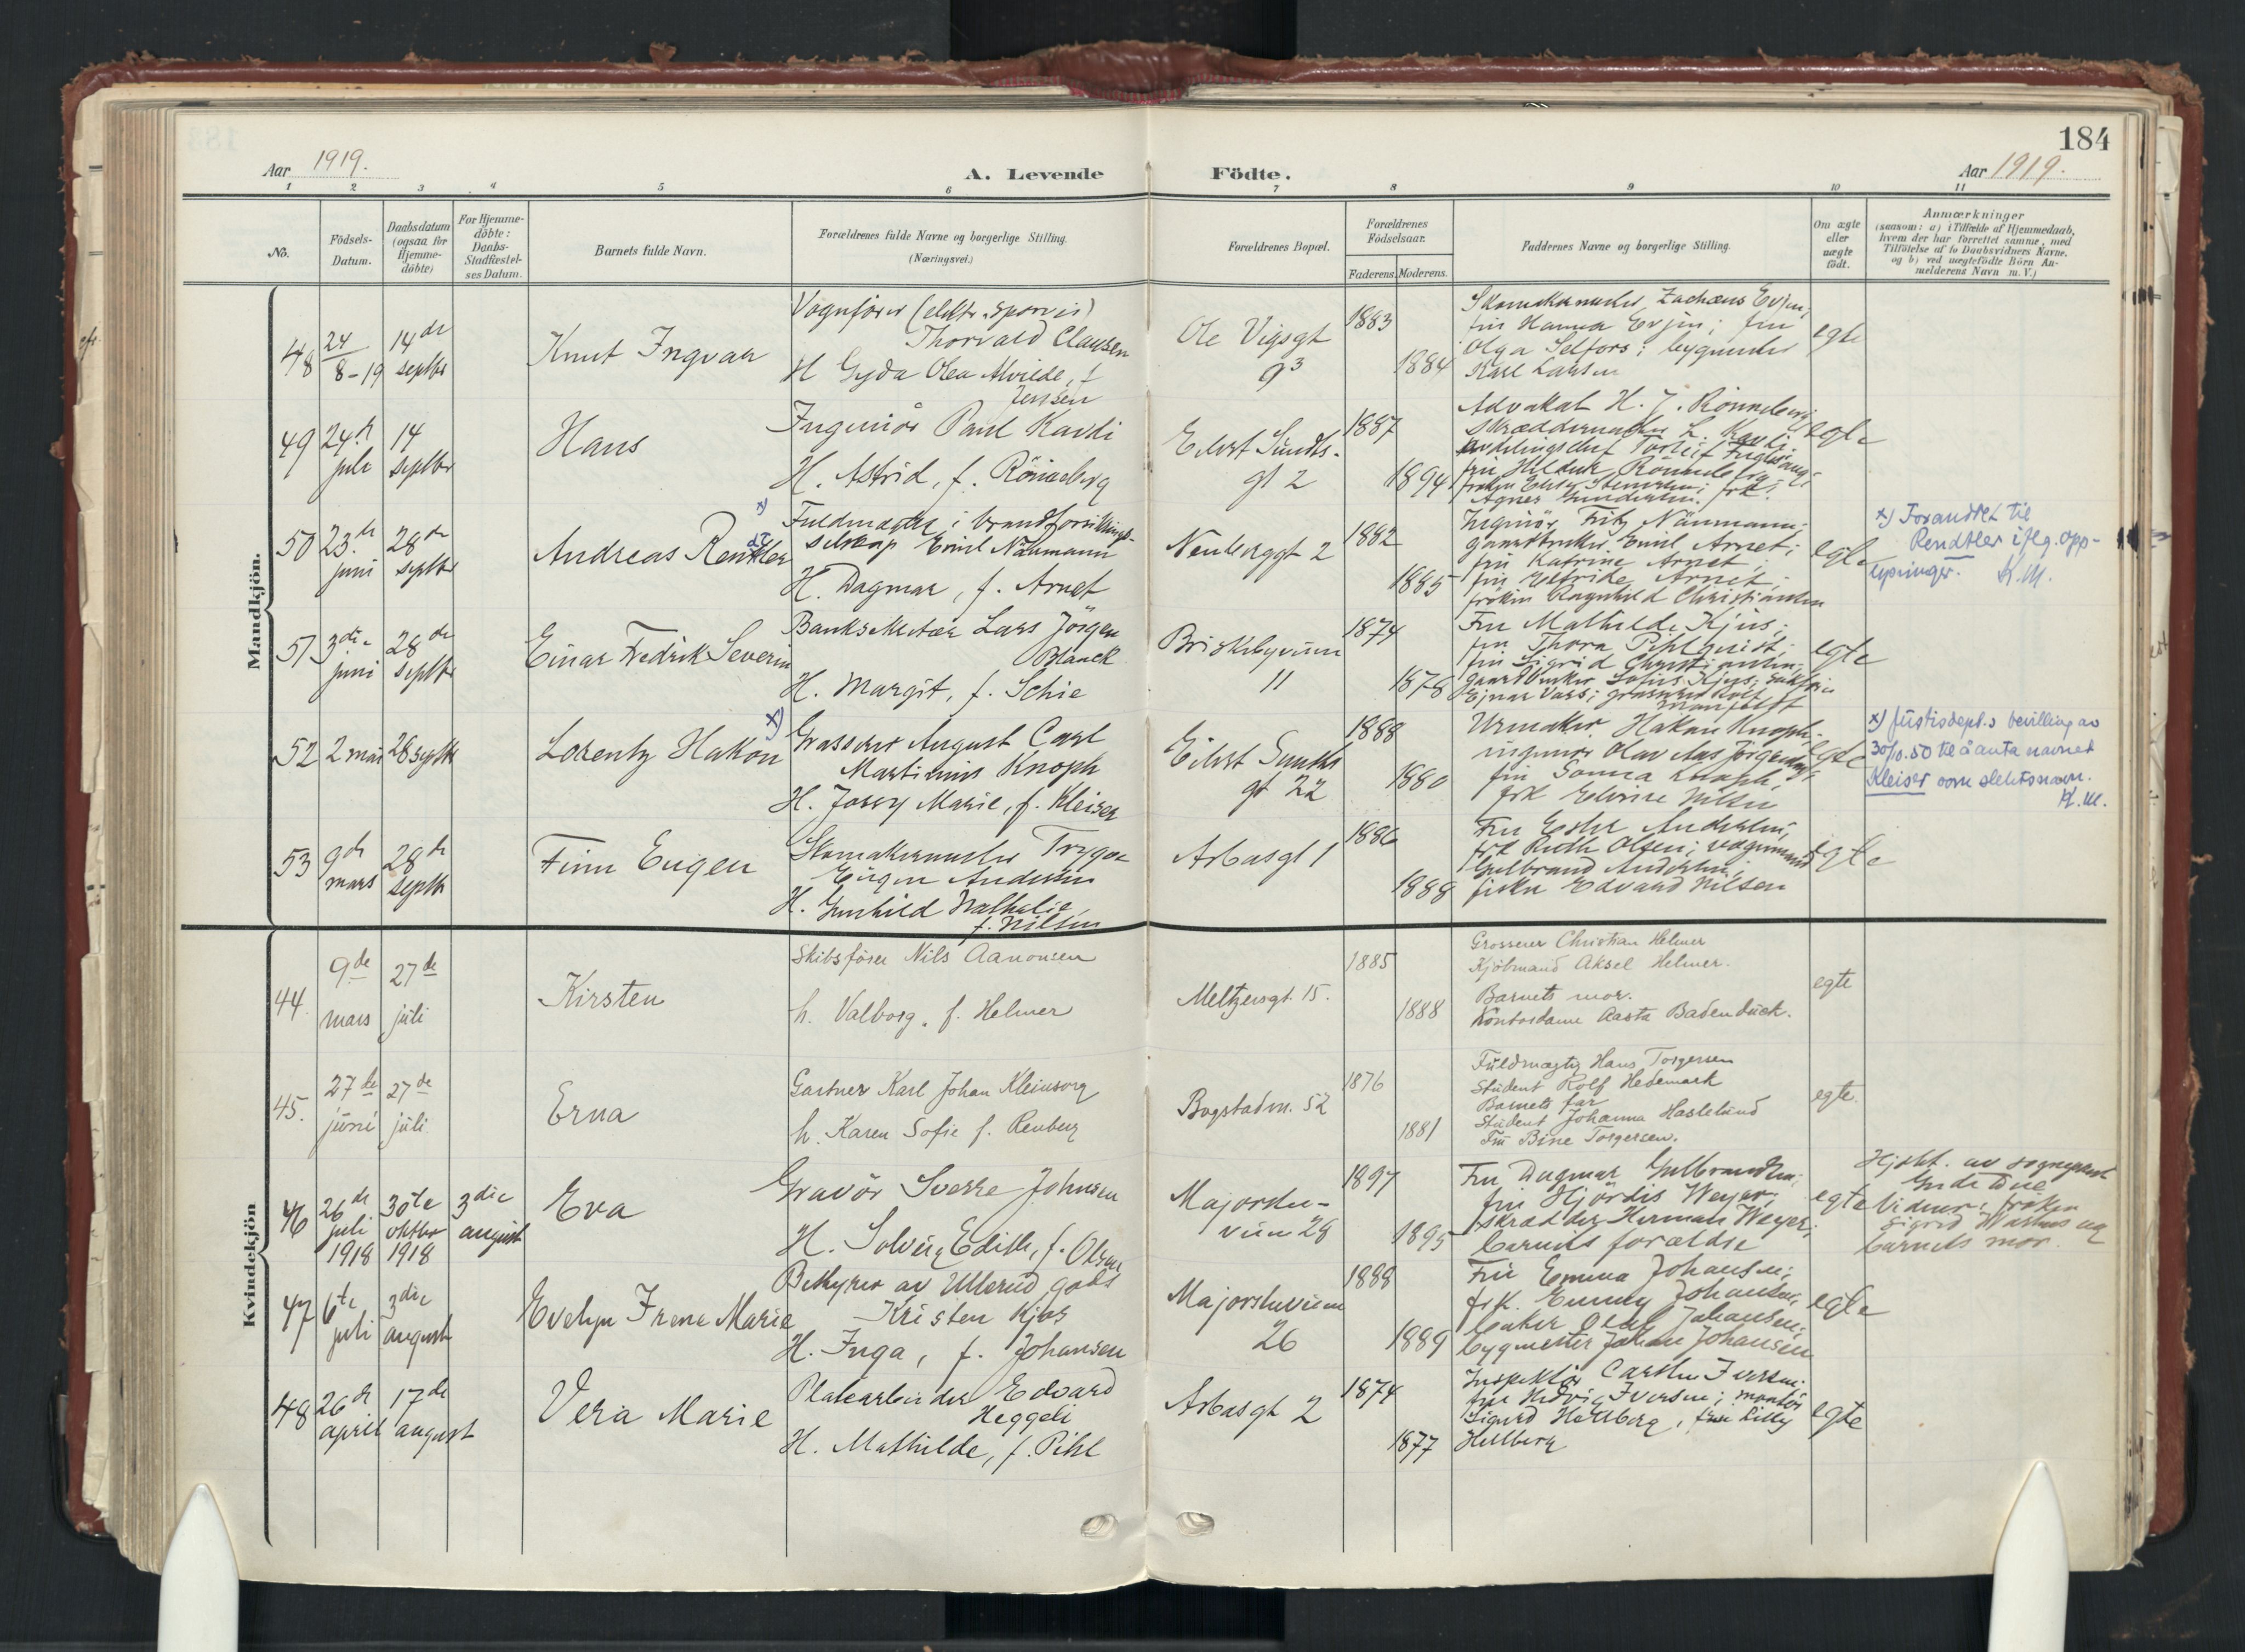 184
Aar 1919.
A. Levende Födte.
Aar 1919.
1 2 3 4 5 6 7 8 9 10 11
No.
Födsels-Datum.
Daabsdatum (ogsaa for Hjemme-döbte)
For Hjemme-döbte: Daabs-Stadfæstel-ses Datum.
Barnets fulde Navn.
Forældrenes fulde Navne og borgerlige Stilling. (Næringsvei.)
Forældrenes Bopæl.
Forældrenes Födselsaar.
Faderens. Moderens.
Faddernes Navne og borgerlige Stilling.
Om ægte eller uægte födt.
Anmærkninger
(saasom: a) i Tilfælde af Hjemmedaab,
hvem der har forrettet samme, med
Tilföielse af to Daabsvidners Navne,
og b) ved uægtefödte Börn An-
melderens Navn m. V.)
Mandkjön.
48 24/8-19 14de septbr
Knut Ingvar
Vognfører (elektr. sporvei)
Thorvald Clausen
H Gyda Olea Alvilde, f
Jenssen
Ole Vigsgt
9³
1883
1884
Skomakermester Zachæus Evjen;
fru Hanna Evjen; fru
Olga Selfors; bygmester
Karl Larsen
egte
49 24de juli 14 septbr
Hans
Ingeniör Paul Kavli
H. Astrid, f. Rönneberg
Eilert Sundts-
gt 2
1887
1894
Advokat H. J. Rönneberg
Skræddermester L. Kavli;
fru Hilchen Rönneberg;
frk.
Agnes Gundersen.
egte
50 23de juni 28de septbr
Andreas Rentler
x)
dt
Fuldmægtig i brandforsikrings-
selskap Emil Näumann
H. Dagmar, f. Arnet
Neuberggt 2
1882
1885
Ingeniör Fritz Näumann;
gaardbruker Emil Arnet;
fru Katrine Arnet;
fru Elfride Arnet;
frøken Ragnhild Christiansen
egte
x) Forandret til
Rendtler iflg. opp-
lysninger. K.M.
51 3die juni 28de septbr
Einar Fredrik Severin
Banksekretær Lars Jörgen
Blanck
H. Margit, f. Schie
Briskebyveien
11
1874
1878
Fru Mathilde Kjus;
fru Thora Pihlquist;
fru Sigrid Christiansen;
gaardbruker Sofus Kjus;
Ejnar Vaas; grosserer Rolf
egte
52 2 mai 28 septbr
Lorentz Hakon
x)
Grosserer August Carl
Martinius Knoph
H. Jossy Marie, f. Kleiser
Eilert Sundts
gt 22
1888
1880
Urmaker Hakon Knoph;
ingeniör Olav Aas Jörgensen;
fru Sanna Knoph;
frk Edvine Nilsen
egte
x) Justisdept.s bevilling av
30/10.50 til å anta navnet
Kleiser som slektsnavn.
K.M.
53 9de mars 28de septbr
Finn Eugen
Skomakermester Trygve
Eugen Andersen
H. Gunhild Nathalie,
f. Nilsen
Arbosgt 1
1886
1888
Fru Ester Andersen;
frk Ruth Olsen; vognmand
Gulbrand Andersen;
fisker Edvard Nilsen
egte
Kvindekjön
44. 9de mars 27de juli
Kirsten
Skibsfører Nils Aanonsen
h. Valborg, f. Helmer
Meltzersgt. 15.
1885
1888
Grosserer Christian Helmer
Kjøbmand Aksel Helmer.
Barnets mor.
Kontordame Aasta Badendück.
egte
45. 27de juni 27de juli
Erna
Gartner Karl Johan Kleinsorg
h. Karen Sofie f. Renberg
Bogstadvn. 52
1876
1881
Fuldmægtig Hans Torgersen
Student Rolf Hedemark
Barnets far
Student Johanna Haslelund
Fru Bine Torgersen.
egte.
46 26de juli 1918 30te oktbr 1918 3die august
Eva
Gravör Sverre Johnsen
H. Solveig Edith, f. Olsen
Majorstu-
veien 28
1897
1895
Fru Dagmar Gulbrandsen;
fru Hjördis Weyer;
skrædder Herman Weyer;
barnets forældre
egte
Hjdbt. av sogneprest
Vidner: frøken
Sigrid og
barnets mor.
47 6te juli 3die august
Evelyn Irene Marie
Bestyrer av Ullerud gods
Kristen Kjos
H. Inga, f. Johansen
Majorstuveien
26
1888
1889
Fru Emma Johansen;
frk. Emmy Johansen;
baker Olaf Johansen;
bygmester Johan Johansen
egte
48 26de april 17de august
Vera Marie
Platearbeider Edvard
Heggeli
H. Mathilde, f. Pihl
Arbosgt 2
1874
1877
Inspektör Carsten Iversen;
fru Hedvig Iversen; montör
Sigurd Hellberg, frue Lilly
Hellberg
egte